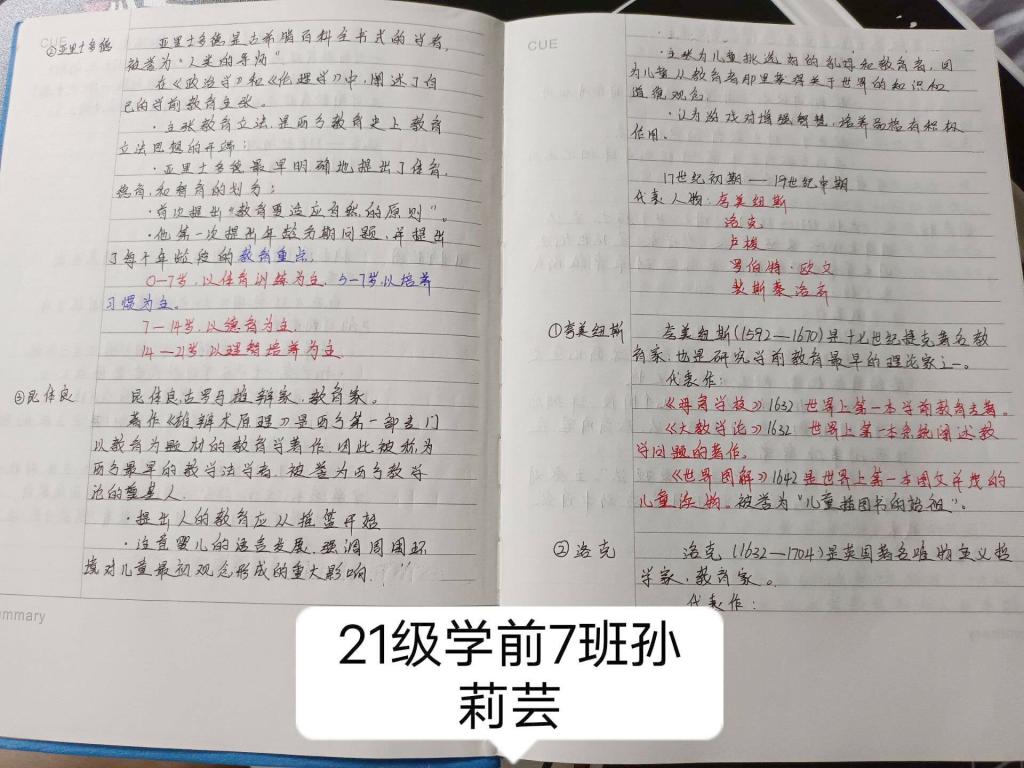 CUE
②亚里士多德
亚里士多德是古希腊百科全书式的学者,
被誉为"人类的导师"
在《政治学》和《伦理学》中,阐述了自
己的学前教育主张。
·主张教育立法,是西方教育史上教育
立法思想的开端;
·亚里士多德最早明确地提出了体育,
德育,和智育的划分;
·首次提出"教育要适应自然的原则"。
·他第一次提出年龄分期问题,并提出
了每个年龄段的教育重点,
0-7岁,以体育训练为主,5-7岁以培养
习惯为主。
7-14岁,以德育为主
14-21岁,以理智培养为主
③昆体良
昆体良古罗马雄辩家,教育家。
著作《雄辩术原理》是西方第一部专门
以教育为题材的教育学著作,因此被称为
西方最早的教学法学者,被誉为西方教学
论的奠基人.
·提出人的教育应从摇篮开始
·注意婴儿的语言发展,强调周围环
境对儿童最初观念形成的重大影响.
ummary
CUE
·主张为儿童挑选好的乳母和教育者,因
为儿童从教育者那里获得关于世界的知识和
道德观念,
·认为游戏对增强智慧,培养品格有积极
作用。
17世纪初期—19世纪中期
代表人物:夸美纽斯
洛克
卢梭
罗伯特·欧文
裴斯泰洛齐
①夸美纽斯
夸美纽斯(1592—1670)是十七世纪捷克著名教
育家,也是研究学前教育最早的理论家之一。
代表作:
《母育学校》1632 世界上第一本学前教育专著。
《大教学论》1632 世界上第一本系统阐述教
学问题的著作。
《世界图解》1642是世界上第一本图文并茂的
儿童读物。被誉为"儿童插图书的始祖"。
②洛克
洛克(1632—1704)是英国著名唯物主义哲
学家,教育家。
代表作:
21级学前7班孙
莉芸